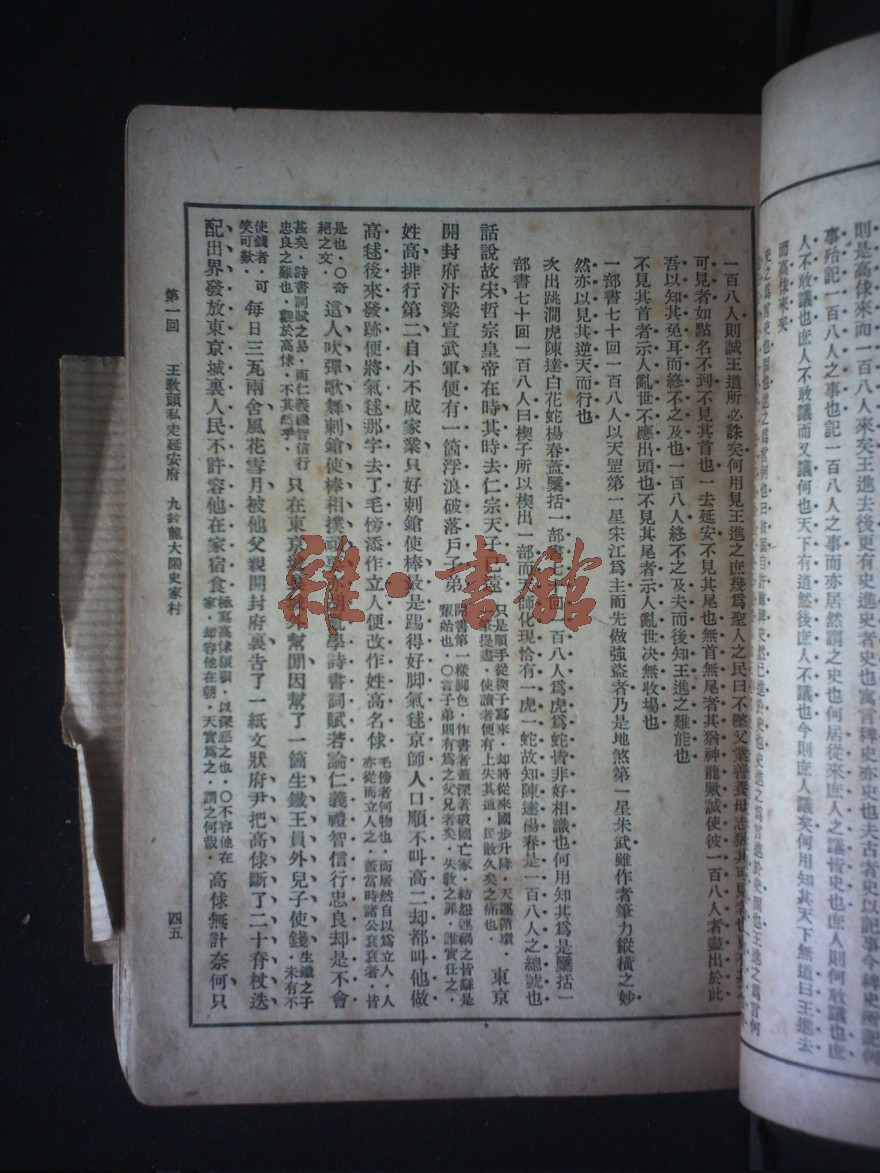 則是高俅來而一百八人來矣王進去後更有史進史者史也寓言稗史亦史也夫古者史以記事今稗史所記何
事殆記一百八人之事也記一百八人之事而亦居然謂之史也何居從來庶人之議皆史也庶人則何敢議也庶
人不敢議也庶人不敢議而又議何也天下有道然後庶人不議也今則庶人議矣何用知其天下無道曰王進去
而高俅來矣
一百八人則誠王道所必誅矣何用見王進之庶幾爲聖人之民曰不墜父業善養母志
可見者如點名不到不見其首也一去延安不見其尾也無首無尾者其猶神龍歟誠使彼一百八人者盡出於此
吾以知其免耳而終不之及也一百八人終不之及夫而後知王進之難能也
不見其首者示人亂世不應出頭也不見其尾者示人亂世决無收場也
一部書七十回一百八人以天罡第一星宋江爲主而先做強盜者乃是地煞第一星朱武雖作者筆力縱橫之妙
然亦以見其逆天而行也
次出跳澗虎陳達白花蛇楊春蓋隱括一部書七十回一百八人爲虎爲蛇皆非好相識也何用知其爲是隱括一
部書七十回一百八人曰楔子所以楔出一部而天師化現恰有一虎一蛇故知陳達楊春是一百八人之總號也
話說故宋哲宗皇帝在時其時去仁宗天子已遠 只是順手從楔子寫來，却將從來國步升降，天運循環，提盡，使讀者便有上失其道，民散久矣之痛也． 東京
開封府汴梁宣武軍便有一箇浮浪破落戶子弟 開書第一樣脚色，作書者蓋深著破國亡家，結怨連禍之皆繇是輩始也．〇言子弟則有爲之父兄者矣，失敎之罪，誰實任之．
姓高排行第二自小不成家業只好刺鎗使棒最是踢得好脚氣毬京師人口順不叫高二却都叫他做
高毬後來發跡便將氣毬那字去了毛傍添作立人便改作姓高名俅 毛傍者何物也，而居然自以爲立人，人亦從而立人之，蓋當時諸公袞袞者，皆
是也．〇奇絕之文． 這人吹彈歌舞刺鎗使棒相撲頑耍亦胡亂學詩書詞賦若論仁義禮智信行忠良却是不會
甚矣，詩書詞賦之易，而仁義禮智信行忠良之難也，觀於高俅，不其然乎． 只在東京城裏城外幫閒因幫了一箇生鐵王員外兒子使錢 生鐵之子，未有不
使錢者，可笑可歎． 每日三瓦兩舍風花雪月被他父親開封府裏告了一紙文狀府尹把高俅斷了二十脊杖迭
配出界發放東京城裏人民不許容他在家宿食 極寫高俅狼狽，以深惡之也．〇不容他在家，却容他在朝，天實爲之，謂之何哉． 高俅無計奈何只
第一回　王敎頭私走延安府　九紋龍大鬧史家村　四五
雜·書館